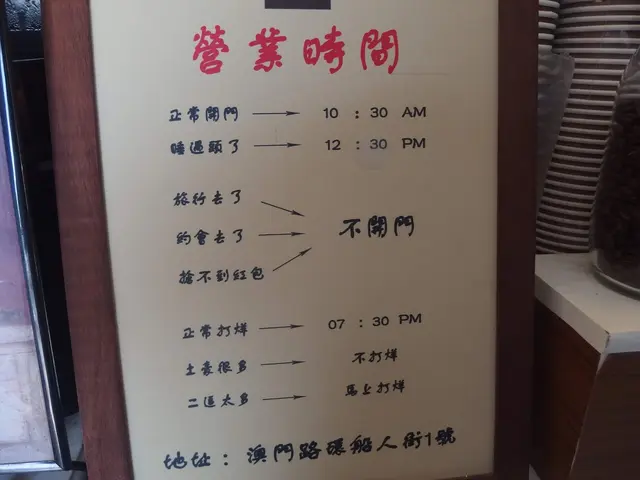 營業時間
正常開門 → 10 : 30 AM
睡過頭了 → 12 : 30 PM
旅行去了
約會去了 → 不開門
搶不到紅包
正常打烊 → 07 : 30 PM
土豪很多 → 不打烊
二逼太多 → 馬上打烊
地址 : 澳門路環船人街1號